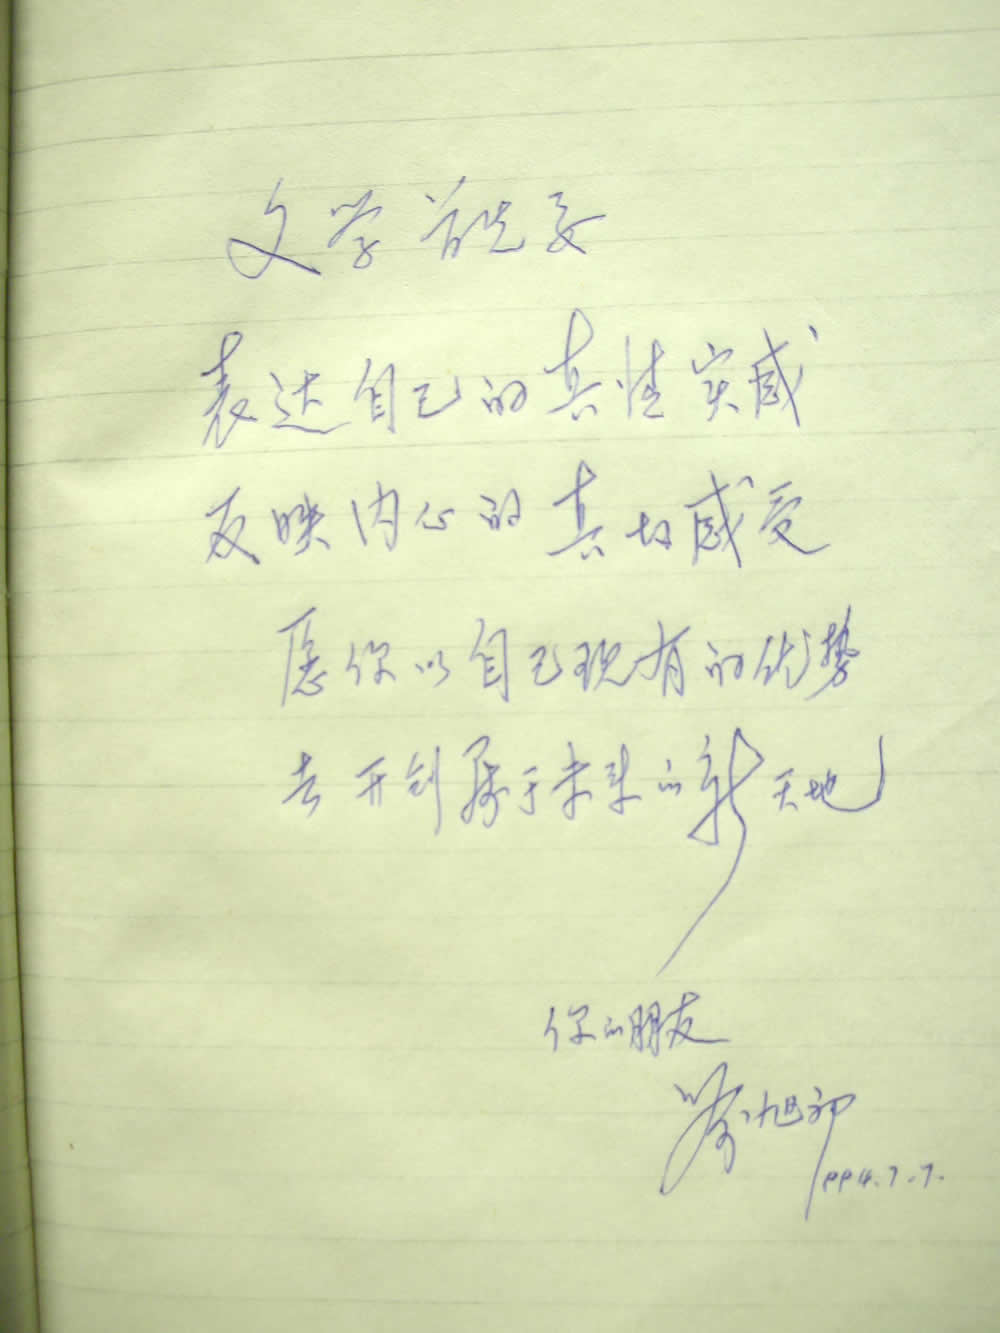 文学首先要
表达自己的真情实感
反映内心的真切感受
愿你以自己现有的优势
去开创属于未来的新天地
你的朋友
旭初
1994.7.7.